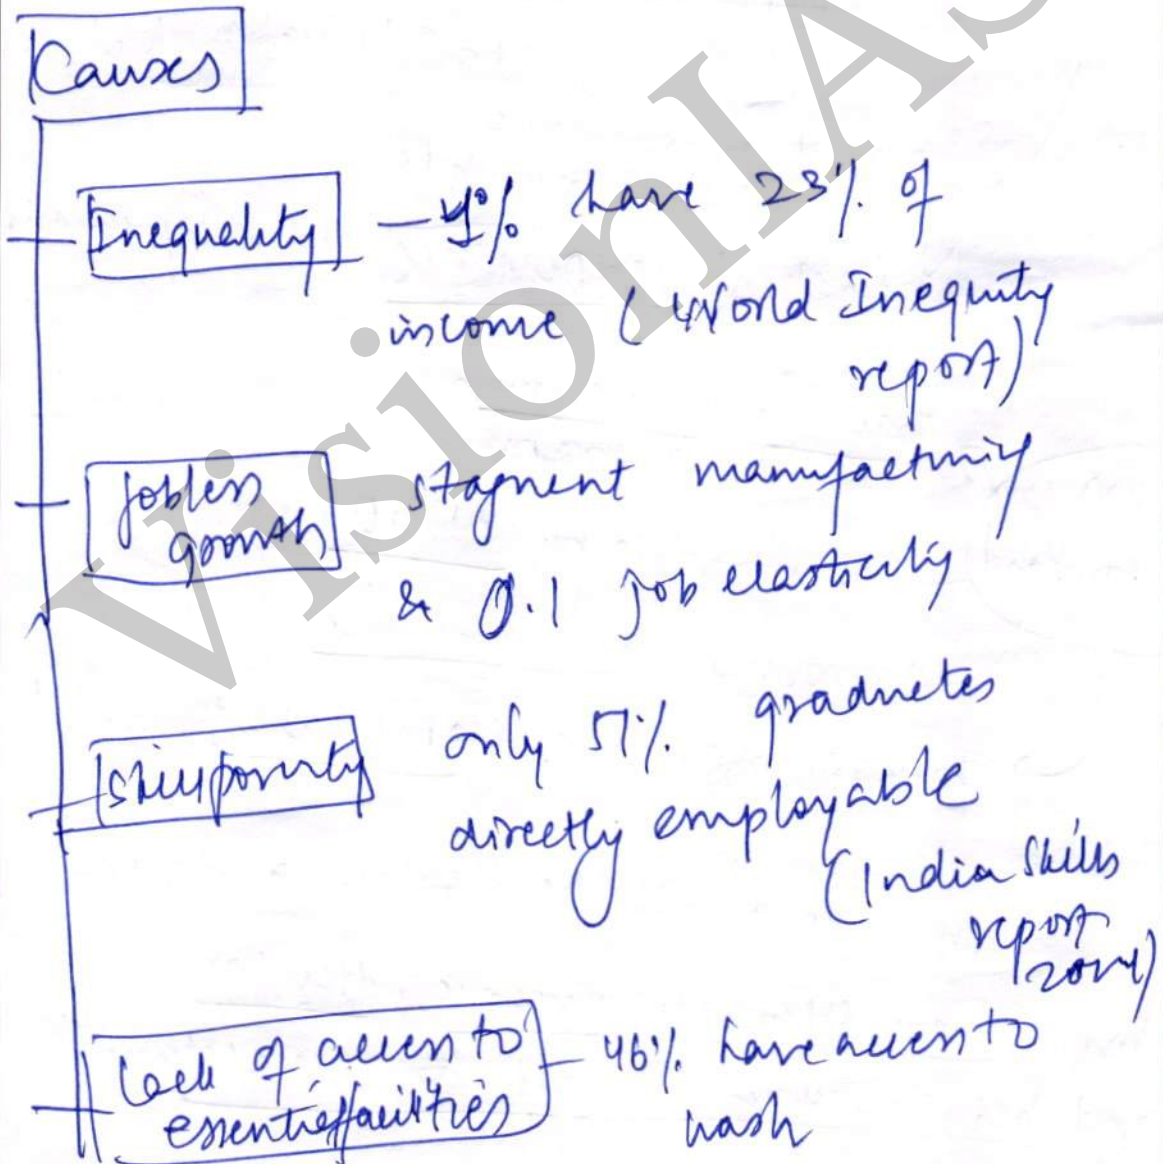 Causes
Inequality — 1% have 23% of
income (World Inequity
report)
jobless
growth
stagnent manufacturing
& 0.1 job elasticity
Skill poverty
only 51% graduates
directly employable
(India Skills
report
Lack of access to
essential facilities
— 46% have access to
wash
VisionIAS